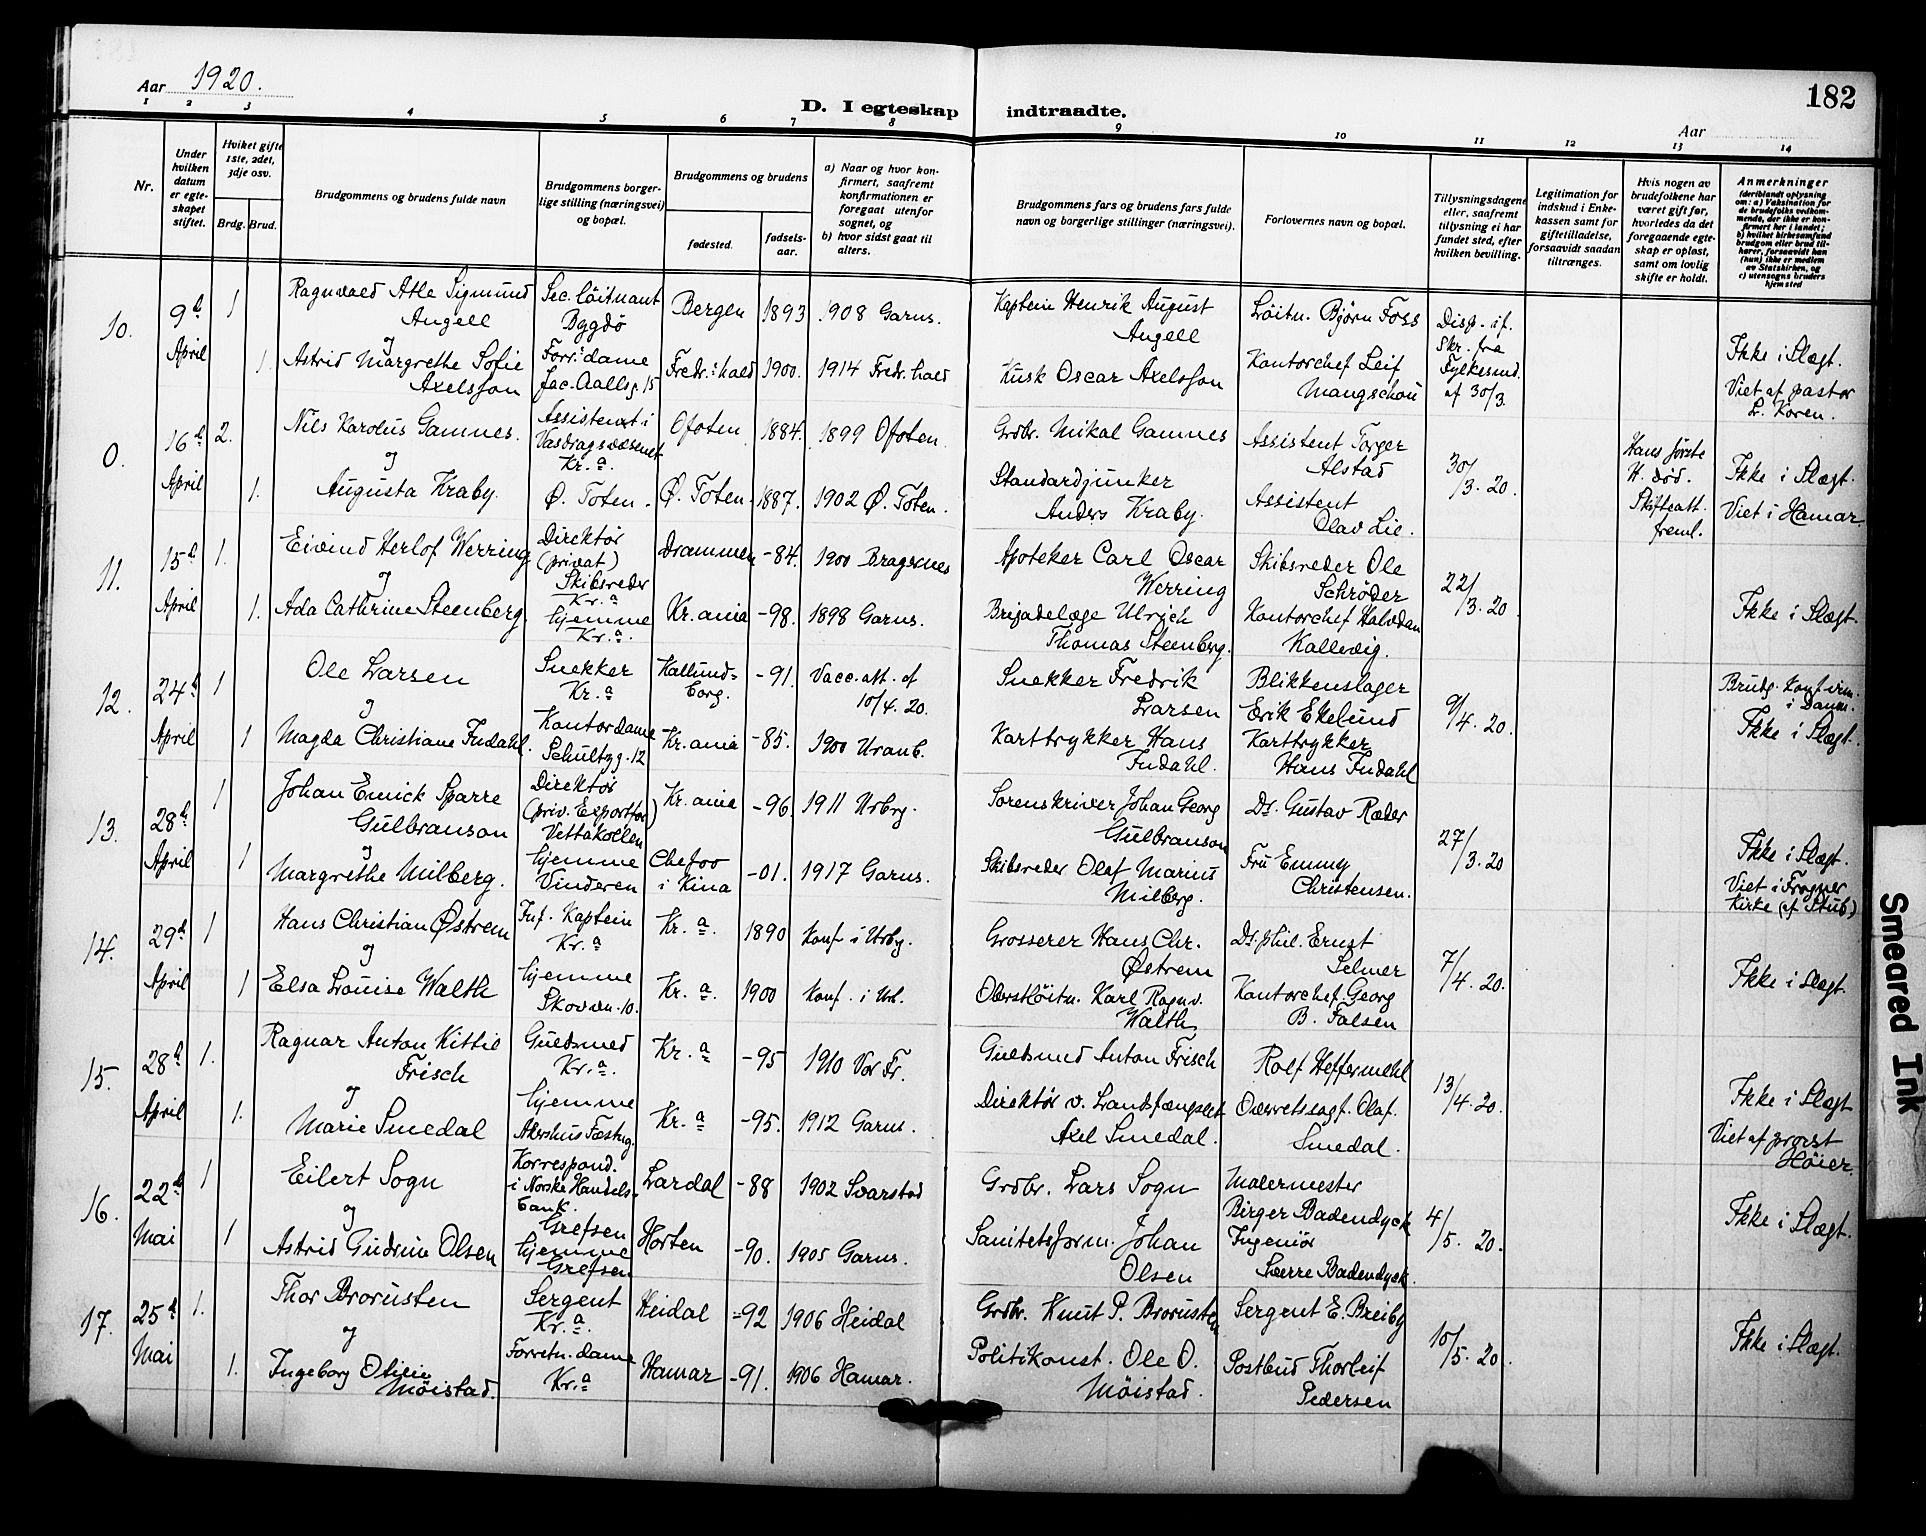 Aar 1920.
D. I egteskap indtraadte.
182
Aar
1 2 3 4 5 6 7 8 9 10 11 12 13 14
Nr.
Under hvilken datum er egteskapet stiftet.
Hviket gifte 1ste, 2det, 3dje osv.
Brdg. Brud.
Brudgommens og brudens fulde navn
Brudgommens borgerlige stilling (næringsvei) og bopæl.
Brudgommens og brudens
fødested.
fødselsaar.
a) Naar og hvor konfirmert, saafremt konfirmationen er foregaat utenfor sognet, og
b) hvor sidst gaat til alters.
Brudgommens fars og brudens fars fulde navn og borgerlige stillinger (næringsvei).
Forlovernes navn og bopæl.
Tillysningsdagene eller, saafremt tillysning ei har fundet sted, efter hvilken bevilling.
Legitimation for indskud i Enkekassen samt for giftetilladelse, forsaavidt saadan tiltrænges.
Hvis nogen av brudefolkene har været gift før, hvorledes da det foregaaende egteskap er opløst, samt om lovlig skifte er holdt.
Anmerkninger (deriblandt oplysning om: a) Vaksination for de brudefolks vedkommende, der ikke er konfirmert her i landet; b) hvilket kirkesamfund brudgom eller brud tilhører, forsaavidt han (hun) ikke er medlem av Statskirken, og c) utensogns bruders hjemsted
10. 9d April 1 Ragnvald Atle Sigmund Angell Sec. løitnant Bygdø Bergen 1893 1908 Garns. Kaptein Henrik August Angell Løitn. Bjørn Foss Disp. if. Skr. fra Fylkesmd. af 30/3.
og
1. Astrid Margrethe Sofie Axelsson Forr: dame Jac. Aallsg. 15 Fredr:hald 1900. 1914 Fredr. hald Kusk Oscar Axelsson Kontorchef Leif Mangschou Ikke i Slægt. Viet af pastor L. Koren.
0. 16d April 2. Nils Karolus Gamnes. Assistent i Vasdragsvæsenet Kr.a Ofoten 1884. 1899 Ofoten. Grdbr. Mikal Gamnes Assistent Torger Alstad 30/3. 20. Hans første H. død. Skifteatt. freml.
og
1. Augusta Kraby. Ø. Toten. Ø. Toten. 1887. 1902 Ø. Toten. Standardjunker Anders Kraby. Assistent Olav Lie. Ikke i Slægt. Viet i Hamar
11. 15d April 1. Eivind Herlof Werring Direktør (privat) Skibsreder Kr.a Drammen -84. 1900 Bragernes Apoteker Carl Oscar Werring Skibsreder Ole Schrøder 22/3. 20.
og
1. Ada Cathrine Steenberg. hjemme Kr.a. Kr.ania -98. 1898 Garns. Brigadelæge Ulrich Thomas Steenberg. Kontorchef Halvdan Kallevig. Ikke i Slægt.
12. 24d April 1 Ole Larsen Snekker Kr.a Kallundborg. -91. Vacc. att. af 10/4. 20. Snekker Fredrik Larsen Blikkenslager Erik Ekelund 9/4. 20. Brudg. konfirm. i Danm.
og
1 Magda Christiane Indahl. Kontordame Schultzg. 12 Kr.ania -85. 1900 Uranb. Karttrykker Hans Indahl. Karttrykker Hans Indahl Ikke i Slægt.
13. 28de April 1 Johan Emick Sparre Gulbranson Direktør (priv. Exportfor) Vettakollen Kr.ania -96. 1911 Urbrg. Sorenskriver Johan Georg Gulbranson Dr. Gustav Ræder 27/3. 20
og
1 Margrethe Milberg. hjemme Vinderen Chefoo i Kina -01. 1917 Garns. Skibsreder Olaf Marius Milberg. Fru Emmy Christensen. Ikke i Slægt. Viet i Frogner Kirke (af Stub)
14. 29d April 1 Hans Christian Østrem Inf. Kaptein Kr.a Kr.a. 1890 Konf. i Urbg. Grosserer Hans Chr. Østrem Dr. phil. Ernst Selmer 7/4. 20.
og
1 Elsa Louise Walth hjemme Skovvn. 10. Kr.a. 1900 Konf. i Urb. Oberstløitn. Karl Ragnv. Walth Kontorchef Georg B. Falsen Ikke i Slægt.
15. 28d April 1. Ragnar Anton Kittil Frisch Guldsmed Kr.a. Kr.a -95 1910 Vor Fr. Guldsmed Anton Frisch Rolf Heffermehl 13/4. 20.
og
1. Marie Smedal hjemme Akershus Fæstng. Kr.a -95. 1912 Garns. Direktør v. Landsfængslet Axel Smedal. Overretssagf. Olaf. Smedal. Ikke i Slægt Viet af provst Høier.
16. 22d Mai 1 Eilert Sogn Korrespond. i Norske Handelsbank. Grefsen Lardal -88 1902 Svarstad Grdbr. Lars Sogn Malermester Birger Badendyck 4/5. 20.
og
1 Astrid Gudrun Olsen hjemme Grefsen Horten -90. 1905 Garns. Sanitetsform. Johan Olsen Ingeniør Sverre Badendyck. Ikke i Slægt.
17. 25d Mai 1. Thor Brorusten Sergent Kr.a. Heidal -92 1906 Heidal Grdbr. Knut P. Brorusten Sergent E. Breiby 10/5. 20.
og
1. Ingeborg Otilie Møistad. Forretn. dame Kr.a Hamar -91. 1906 Hamar. Politikonst. Ole O. Møistad. Postbud Thorleif Pedersen Ikke i Slægt.
Smeared Ink